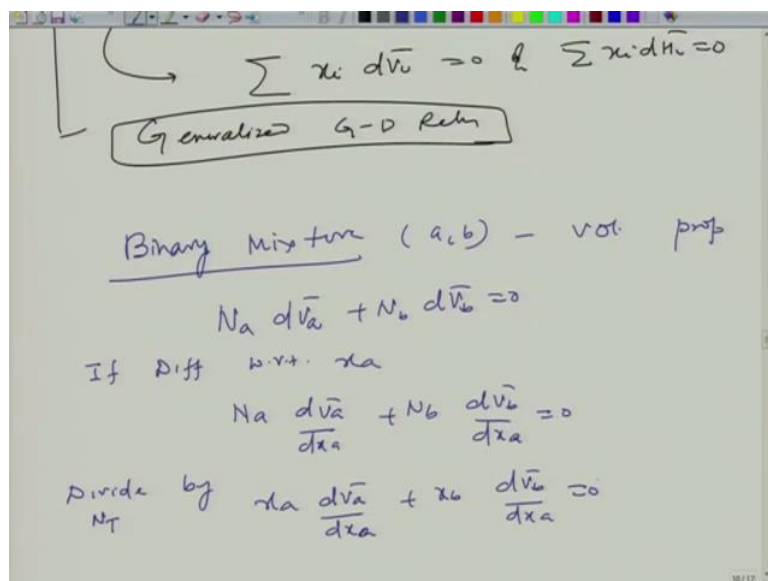 ∑ xi dV̄i = 0 & ∑ xi dH̄i = 0
Generalized G-D Reln
Binary Mixture (a,b) - vol. prop
Na dV̄a + Nb dV̄b = 0
If Diff w.r.t. xa
Na dV̄a/dxa + Nb dV̄b/dxa = 0
Divide by NT xa dV̄a/dxa + xb dV̄b/dxa = 0